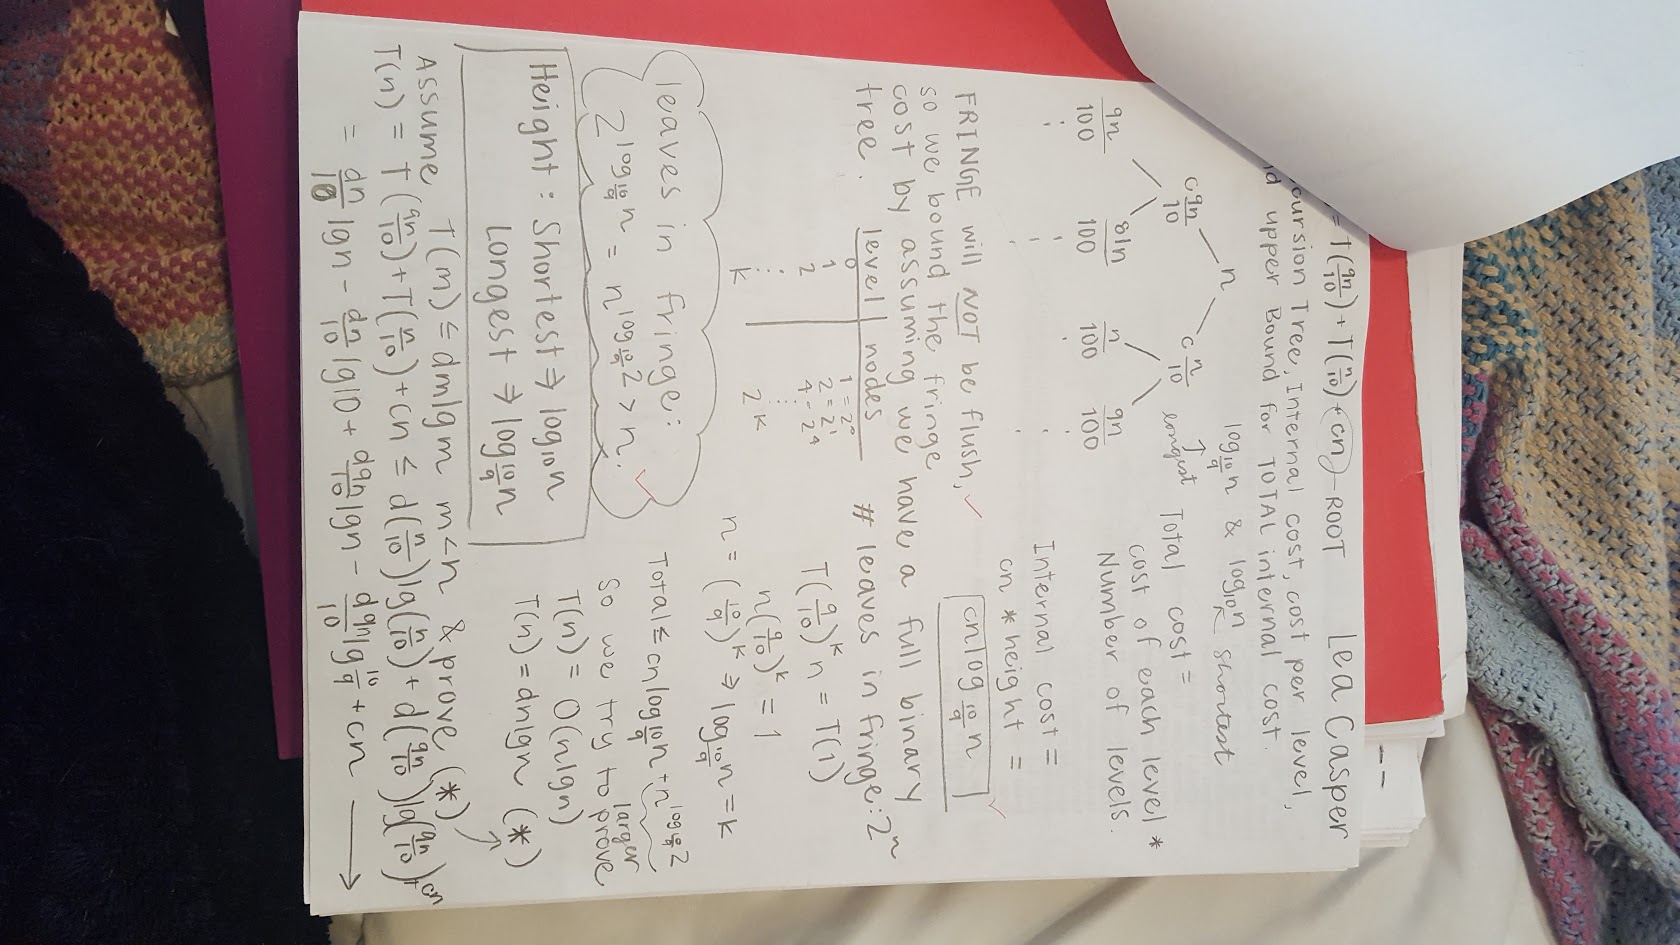 = T(9n/10) + T(n/10) + cn - ROOT
Lea Casper
cursion Tree, Internal cost, cost per level,
d upper Bound for TOTAL internal cost.
n
c 9n/10
c n/10
9n/100
81n/100
n/100
9n/100
log_{10/9} n & log_{10} n
longest
shortest
Total cost =
cost of each level *
Number of levels.
Internal cost =
cn * height =
cn log_{10/9} n
FRINGE will NOT be flush,
so we bound the fringe
cost by assuming we have a full binary
tree.
level | nodes
0 1 = 2^0
1 2 = 2^1
2 4 - 2^2
⋮ ⋮
k 2^k
# leaves in fringe: 2^n
T(9/10)^k n = T(1)
n(9/10)^k = 1
n = (10/9)^k ⇒ log_{10/9} n = k
leaves in fringe:
2^{log_{10/9} n} = n^{log_{10/9} 2} > n.
Total ≤ cn log_{10/9} n + n^{log_{10/9} 2}
larger
So we try to prove
T(n) = O(n lg n)
T(n) = dn lg n (*)
Height: Shortest ⇒ log_{10} n
Longest ⇒ log_{10/9} n
Assume T(m) ≤ dm lg m m<n & prove (*)
T(n) = T(9n/10) + T(n/10) + cn ≤ d(n/10) lg(n/10) + d(9n/10) lg(9n/10) + cn
= dn/10 lg n - dn/10 lg 10 + d9n/10 lg n - d9n/10 lg 10/9 + cn →